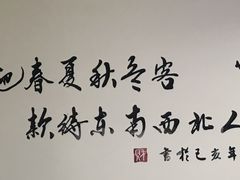 迎春夏秋冬客
款待东南西北人
書於己亥年